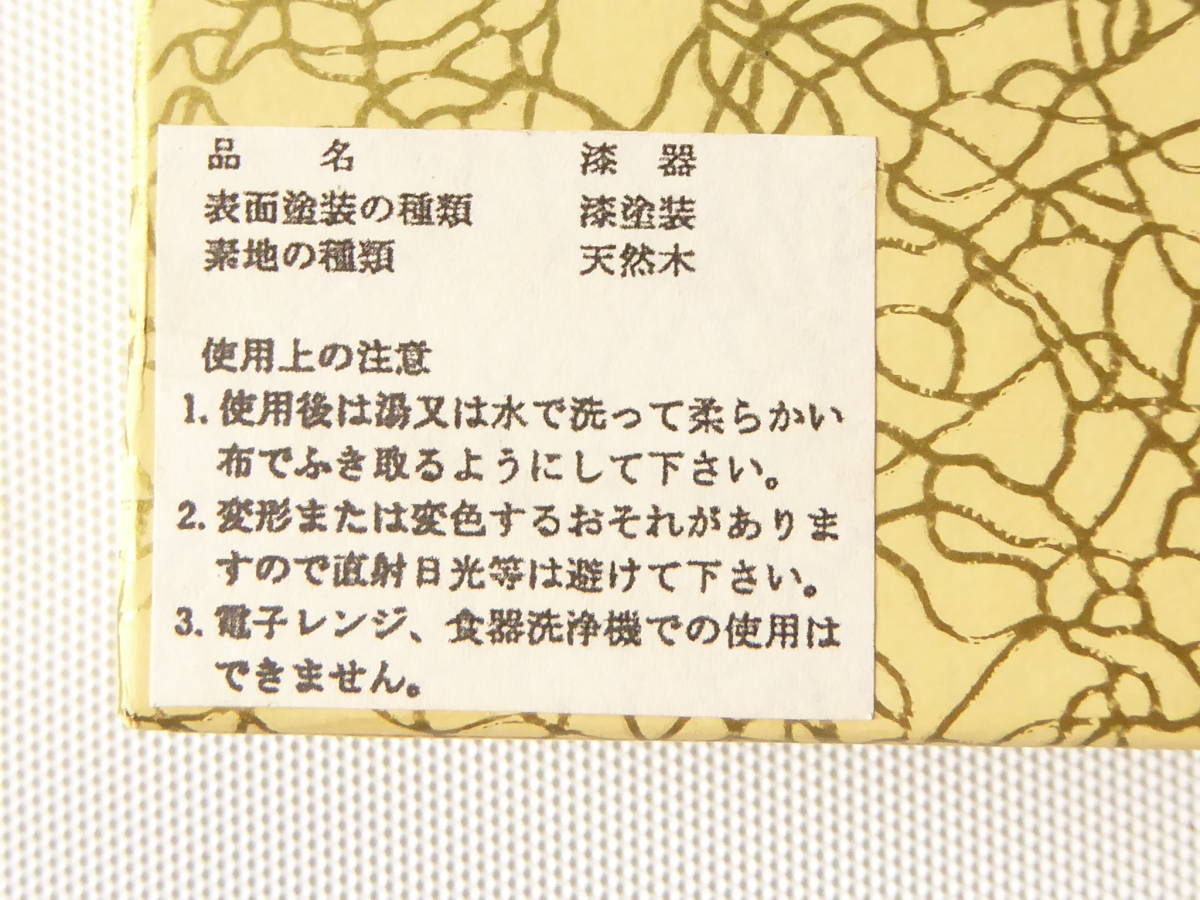 品 名 漆 器
表面塗装の種類 漆塗装
素地の種類 天然木
使用上の注意
1. 使用後は湯又は水で洗って柔らかい
布でふき取るようにして下さい。
2. 変形または変色するおそれがありま
すので直射日光等は避けて下さい。
3. 電子レンジ、食器洗浄機での使用は
できません。